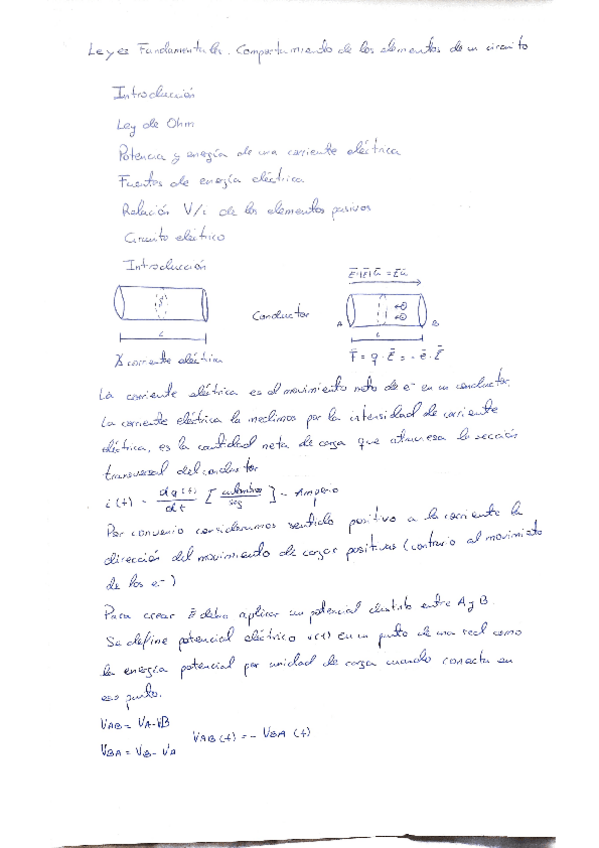 Leyes Fundamentales. Comportamiento de los elementos de un circuito
Introducción
Ley de Ohm
Potencia y energía de una corriente eléctrica
Fuentes de energía eléctrica
Relación V/i de los elementos pasivos
Circuito eléctrico
Introducción
Conductor
A B
L L
∄ corriente eléctrica
F̄ = q · Ē = - e · Ē
La corriente eléctrica es el movimiento neto de e- en un conductor.
La corriente eléctrica la medimos por la intensidad de corriente
eléctrica, es la cantidad neta de carga que atraviesa la sección
transversal del conductor
i(t) = dq(t)/dt [culombios/seg] = Amperio
Por convenio consideramos sentido positivo a la corriente la
dirección del movimiento de cargas positivas (contrario al movimiento
de los e-)
Para crear Ē debo aplicar un potencial distinto entre A y B.
Se define potencial eléctrico v(t) en un punto de una red como
la energía potencial por unidad de carga cuando conecta en
ese punto.
VAB = VA-VB
VAB (t) = - VBA (t)
VBA = VB - VA